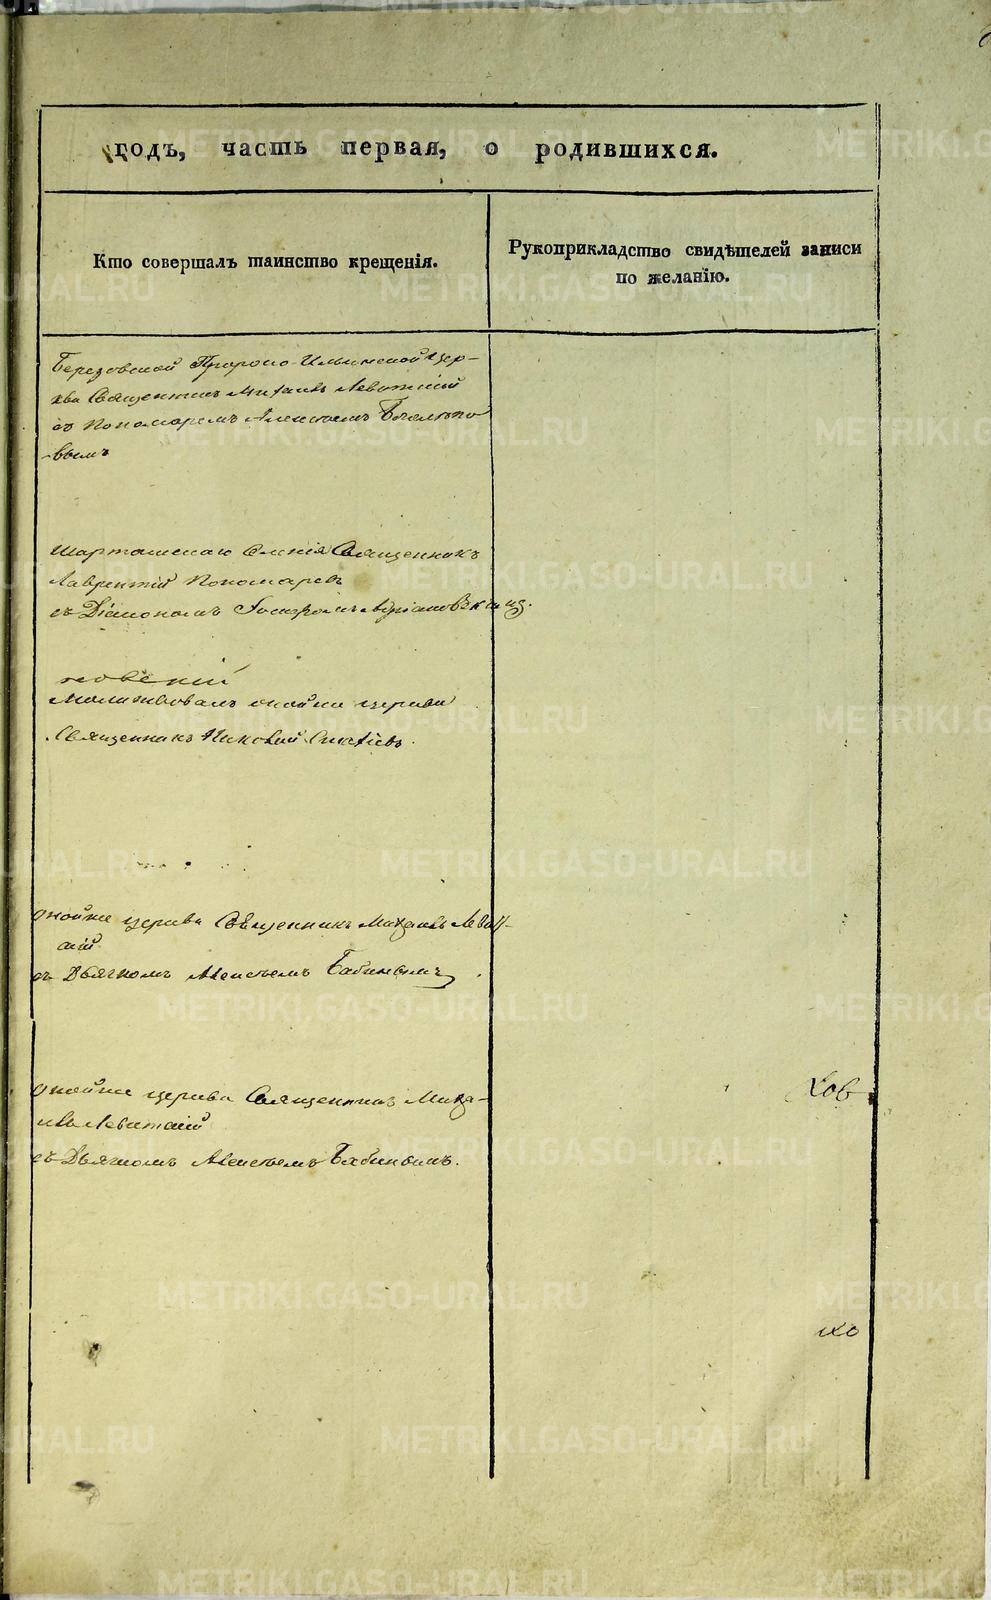 годъ, часть первая, о родившихся.
Кто совершалъ таинство крещенія.
Рукоприкладство свидѣтелей записи
по желанію.
Березовской Пророко-Ильинской цер-
кви Священникъ Михаилъ Левитскій
съ Пономаремъ Алексѣемъ
вымъ
Шарташскаго Священникъ
Лаврентій Пономаревъ
съ Діакономъ
Молитвовалъ оной же церкви
Священникъ
оной же церкви Священникъ Михаилъ Левит-
скій
съ Дьячкомъ Алексѣемъ Бабинымъ
оной же церкви Священникъ Миха-
илъ Левитскій
съ Дьячкомъ Алексѣемъ Бабинымъ.
METRIKI.GASO-URAL.RU